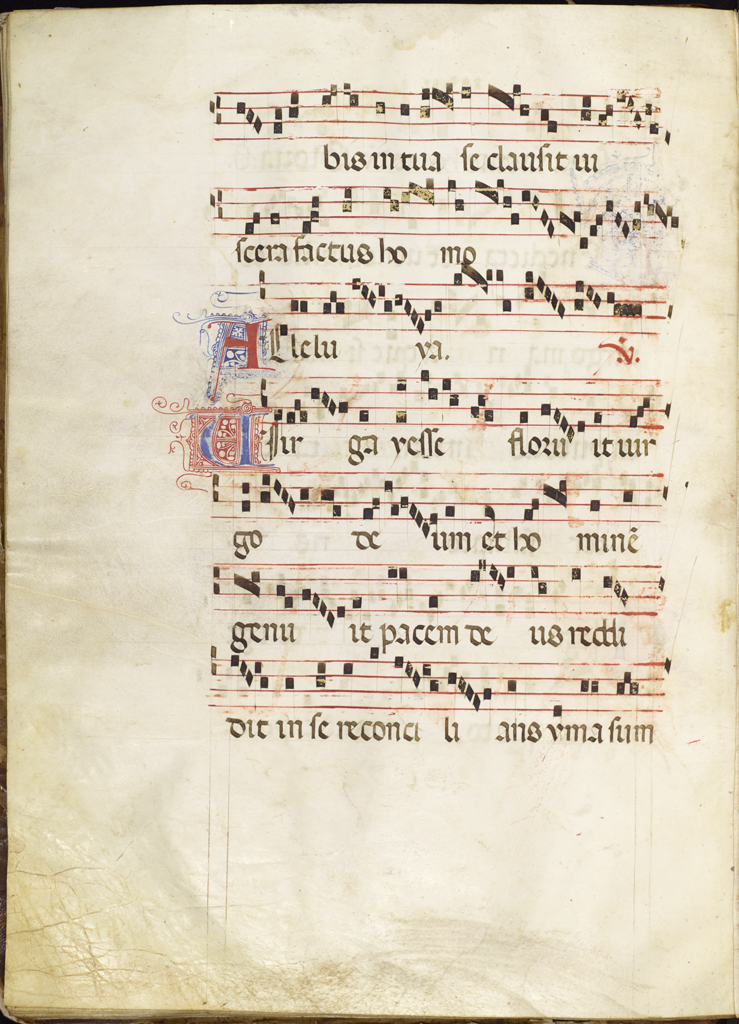 bis in tua se clausit ui
scera factus ho mo
Allelu ya. ℣.
Uir ga yesse floru it uir
go de um et ho minē
genu it pacem de us reddi
dit in se reconci li ans yma sum